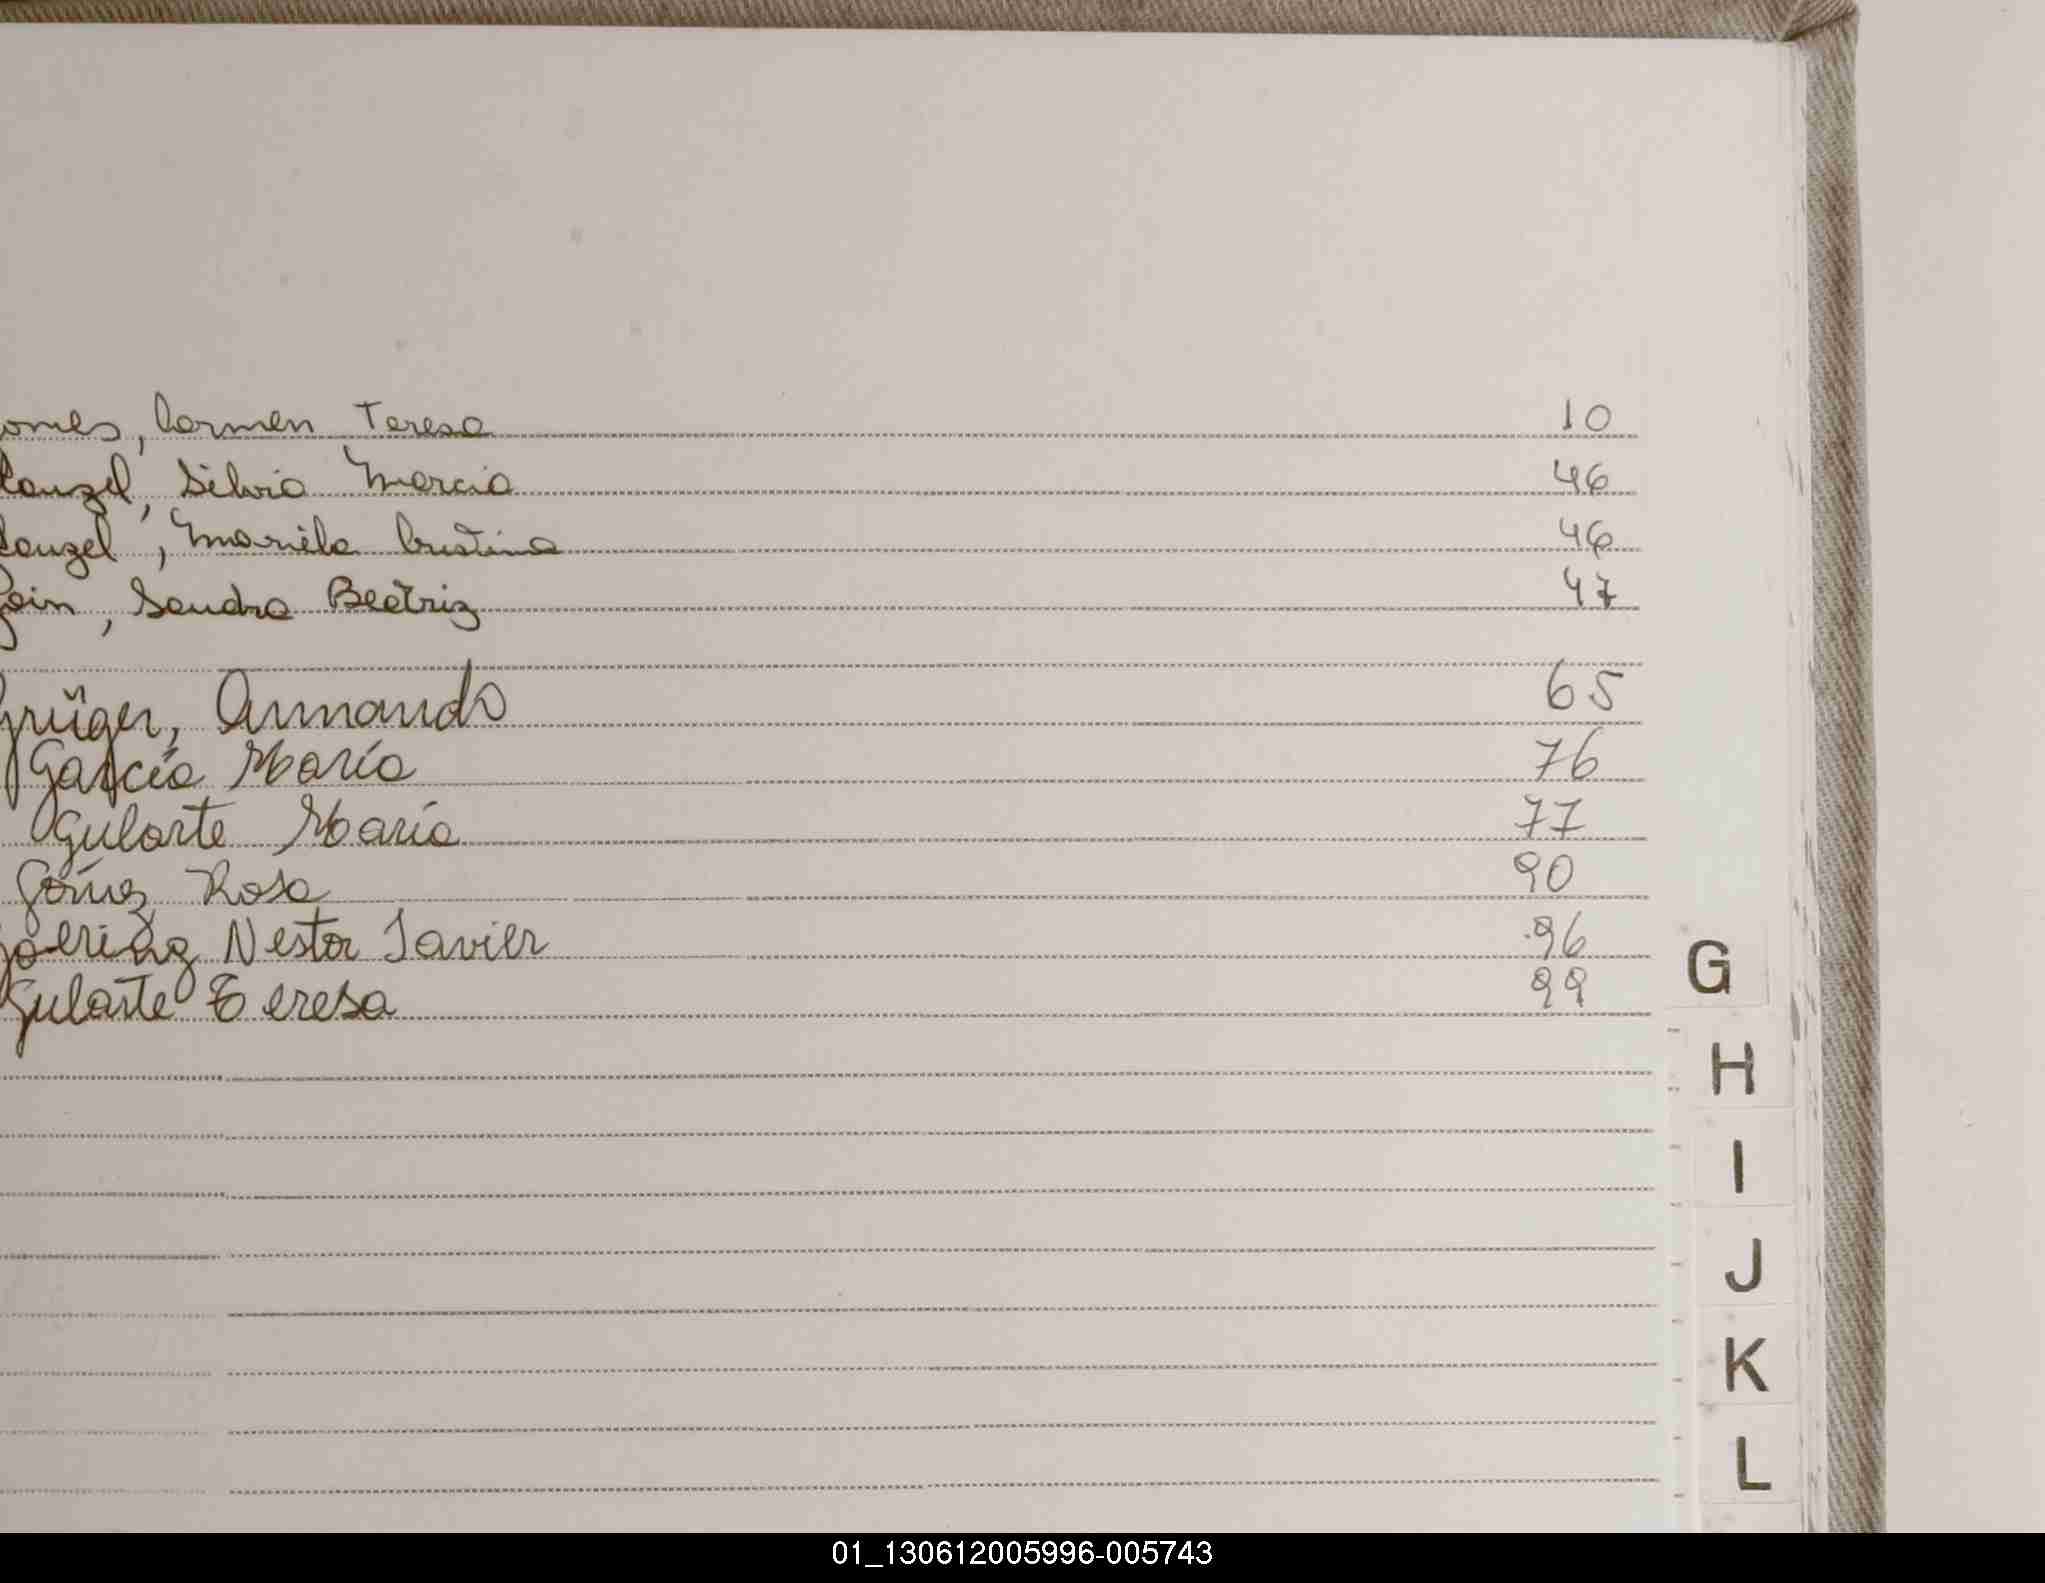 omes, Carmen Teresa 10
Silvia Marcia 46
Mariela Cristina 46
oin, Sandra Beatriz 47
Grüger, Armando 65
García María 76
Gularte María 77
Gómez Rosa 90
Goering Nestor Javier 96
Gularte Teresa 99
G
H
I
J
K
L
01_130612005996-005743